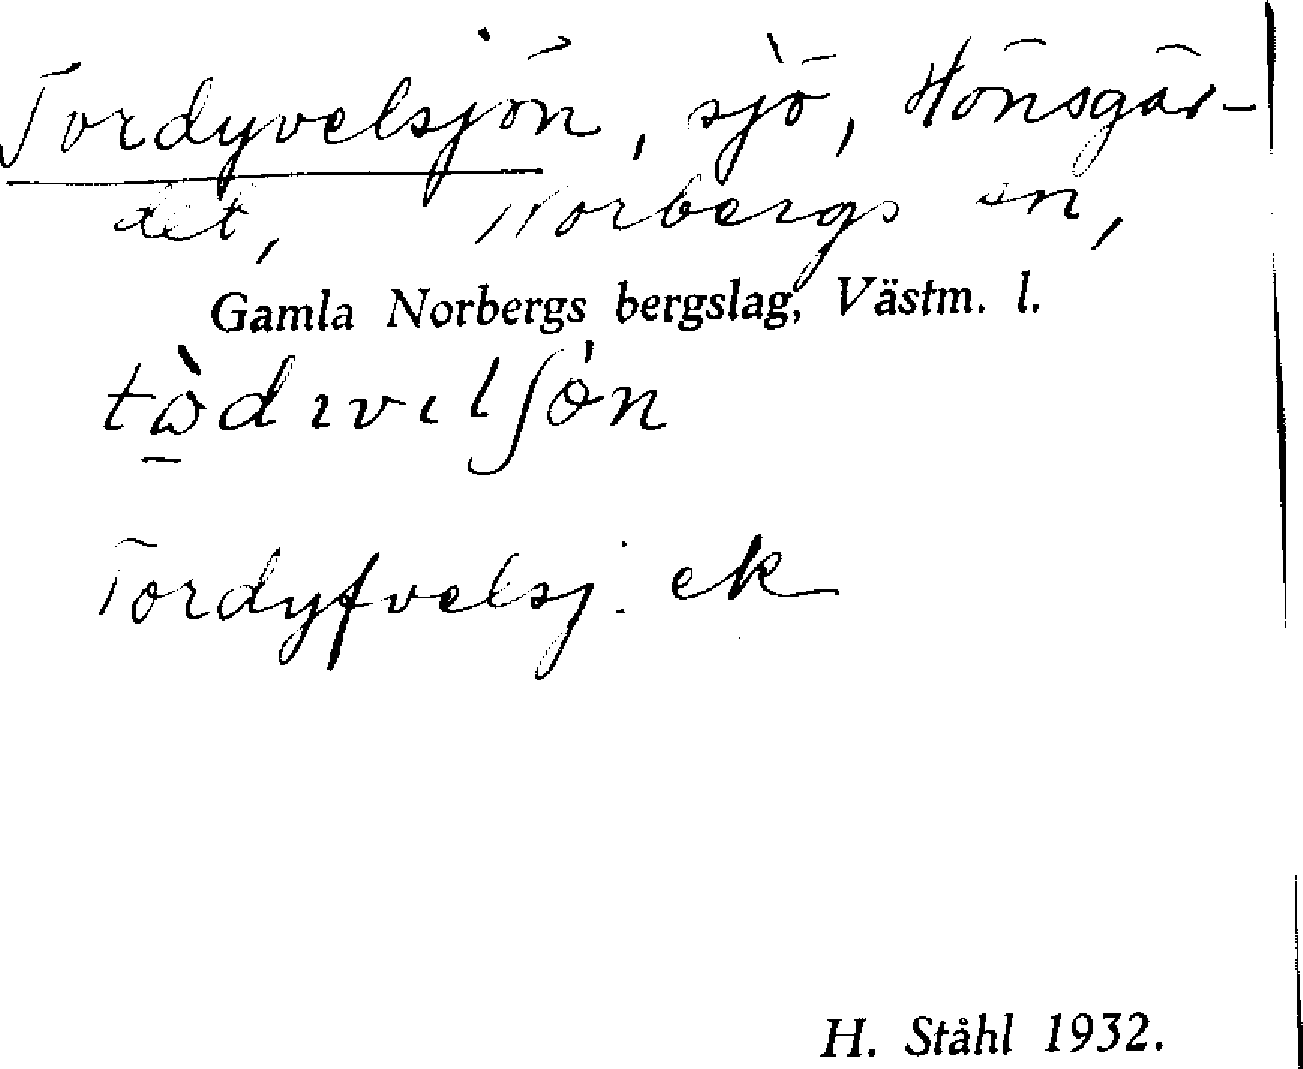 Tordyvelsjön, sjö, Hönsgär-
det, Norbergs sn,
Gamla Norbergs bergslag, Västm. l.
Tordyfvelsj. ek
H. Ståhl 1932.